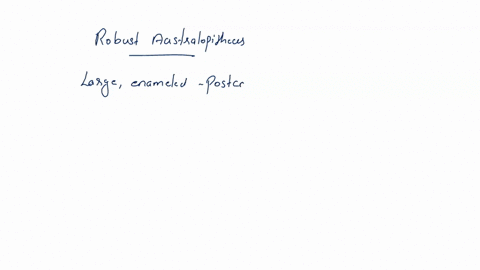 Robust Aastralopithecus
Large, enameled - Poster